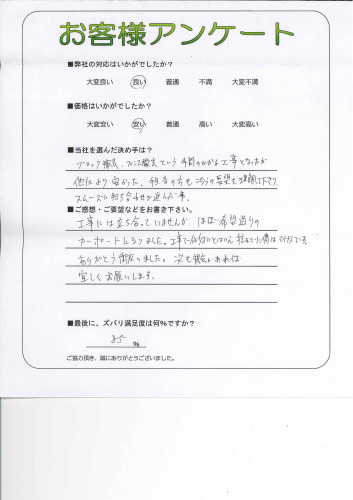 お客様アンケート
■弊社の対応はいかがでしたか?
大変良い 良い 普通 不満 大変不満
■価格はいかがでしたか?
大変安い 安い 普通 高い 大変高い
■当社を選んだ決め手は?
ブロック撤去、フェンス撤去という手間のかかる工事だったが
他社より安かった。担当の方もこちらの要望を理解して下さり
スムーズに打ち合わせが進んだ事。
■ご感想・ご要望などをお書き下さい。
工事には立ち合っていませんが、ほぼ希望通りの
カーポートになりました。工事で仕方ないとはいえ、柱などに傷はマイナスです。
ありがとう御座いました。次も機会があれば
宜しくお願いします。
■最後に、ズバリ満足度は何%ですか?
85 %
ご協力頂き、誠にありがとうございました。